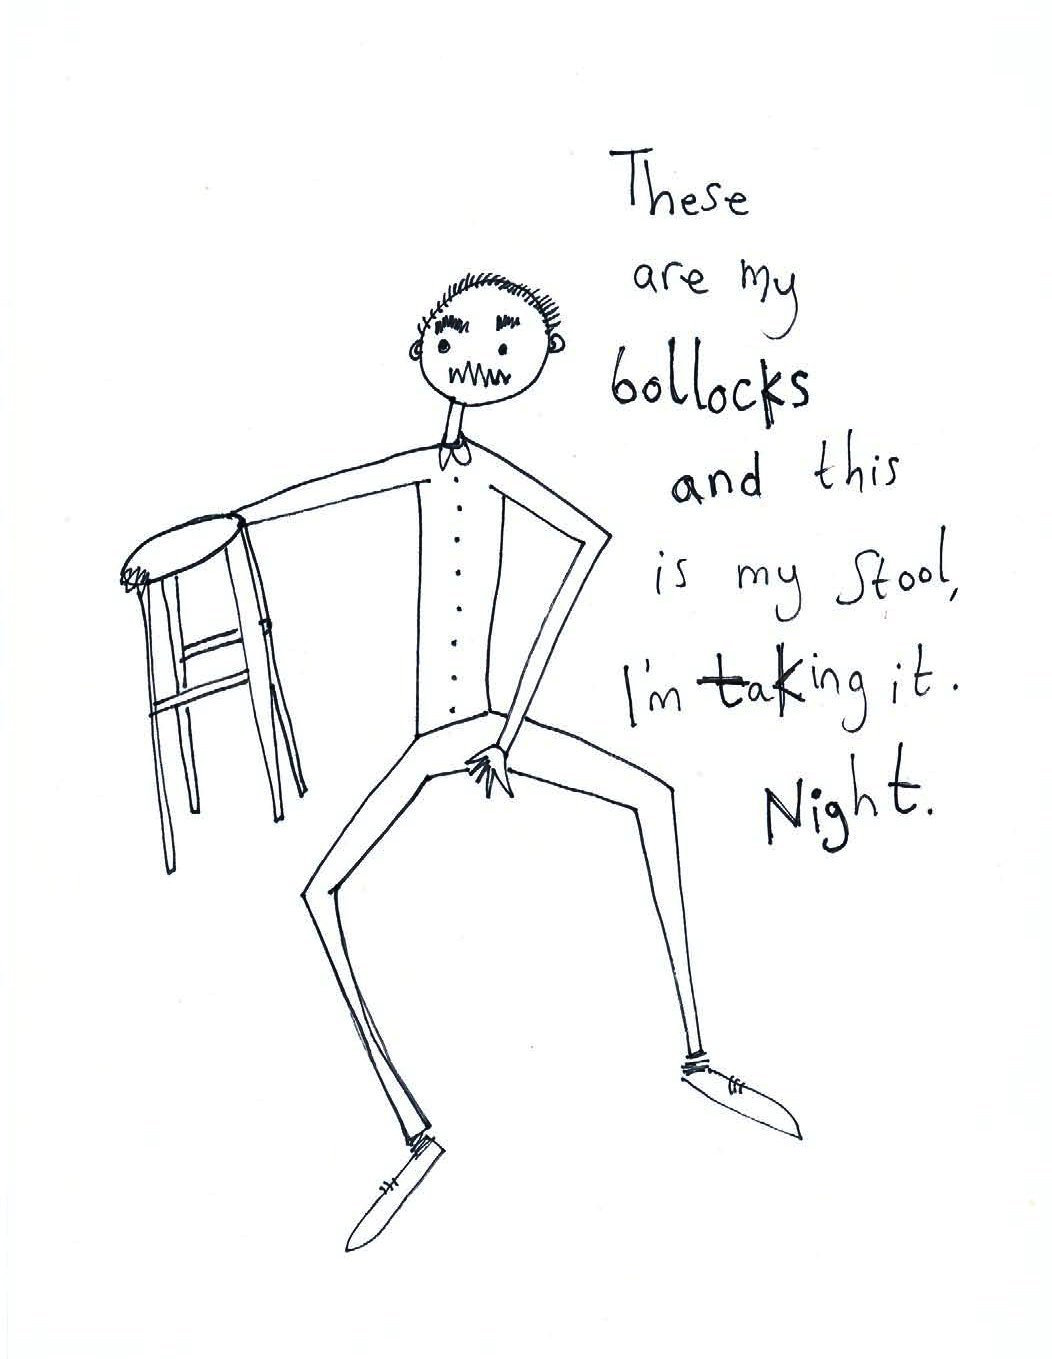 These
are my
bollocks
and this
is my stool,
I'm taking it.
Night.